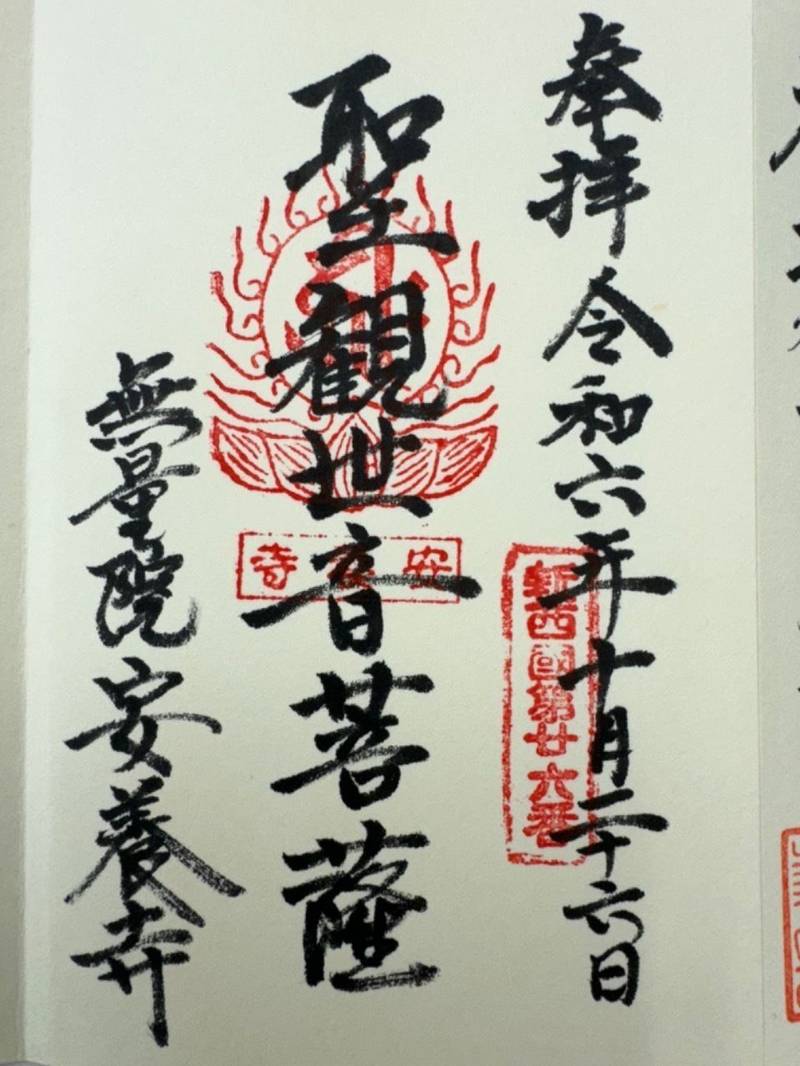 奉拝 令和六年十月二十六日
新西國第廿六番
聖観世音菩薩
安養寺
無量院安養寺